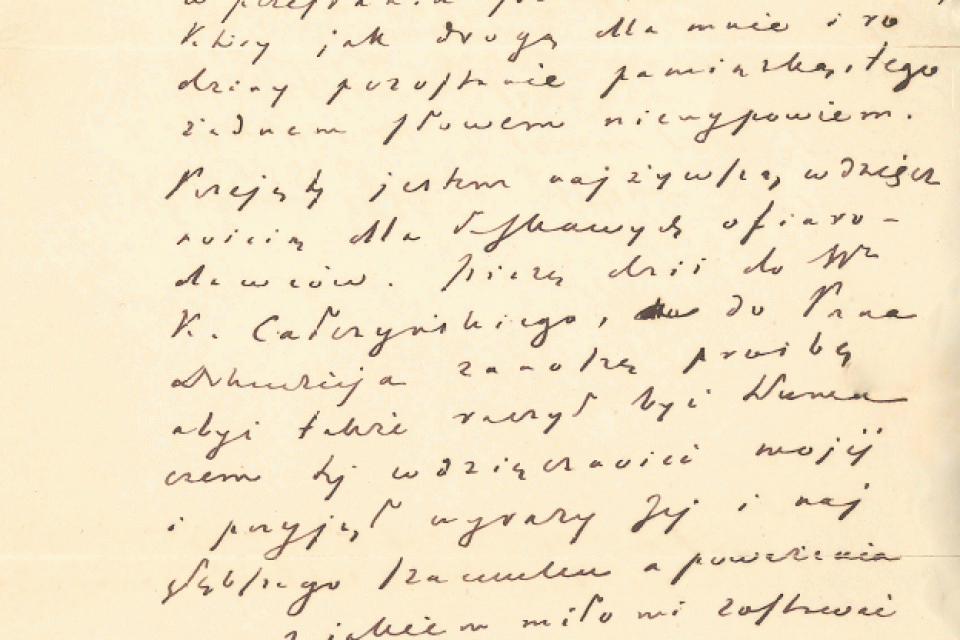 który jak drogą dla mnie i ro
dziny pozostanie pamiątką, tego
żadnem słowem niewypowiem.
Przejęty jestem najżywszą wdzięcz
nością dla łaskawych ofiaro-
dawców. Piszę dziś do Wo
K. Całczyńskiego, do Pana
zanoszę prośbę
abyś także raczył być tłuma
czem tej wdzięczności mojéj
i przyjął wyrazy Jej i naj
głębszego szacunku a poważania
z jakiem miło mi zostawać